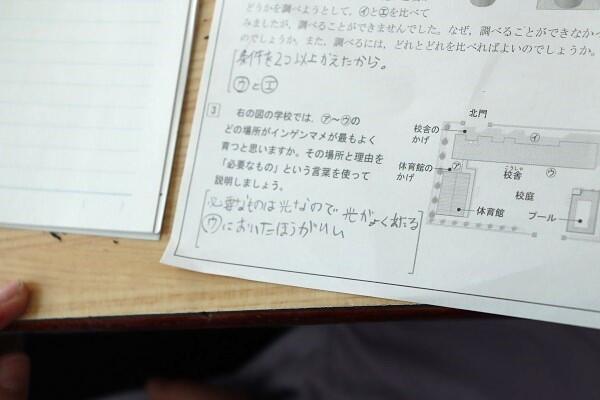 どうかを調べようとして，㋑と㋓を比べて
みましたが，調べることができませんでした。なぜ，調べることができなかっ
のでしょうか。また，調べるには，どれとどれを比べればよいのでしょうか。
条件を2つ以上かえたから。
㋒と㋓
3 右の図の学校では，㋐〜㋒の
どの場所がインゲンマメが最もよく
育つと思いますか。その場所と理由を
「必要なもの」という言葉を使って
説明しましょう。
必要なものは光なので光がよく当たる
㋒においたほうがいい
北門
校舎の
かげ
㋑
体育館の
かげ
㋐
こうしゃ
校舎
㋒
校庭
体育館
プール